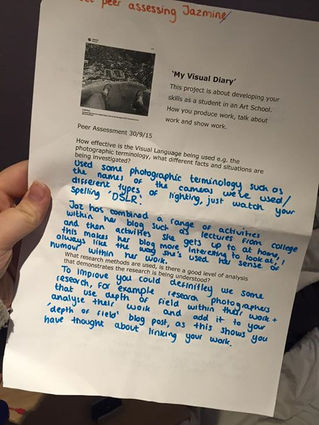 peer assessing Jazmine
'My Visual Diary'
This project is about developing your
skills as a student in an Art School.
How you produce work, talk about
work and show work.
Peer Assessment 30/9/15
How effective is the Visual Language being used e.g. the
photographic terminology, what different facts and situations are
being investigated?
Used some photographic terminology such as
the names of the cameras we've used/
different types of lighting, just watch your
spelling 'DSLR'.
Jaz has combined a range of activities
within her blog such as lectures from college
and then activities she gets up to at home,
this makes her blog more interesting to look at, I
always like the way she's used her sense of
humour within her work.
What research methods are used, is there a good level of analysis
that demonstrates the research is being understood?
To improve you could definitly use some
research, for example research photographers
that use depth of field within their work +
analyse their work and add it to your
'depth of field' blog post, as this shows you
have thought about linking your work.